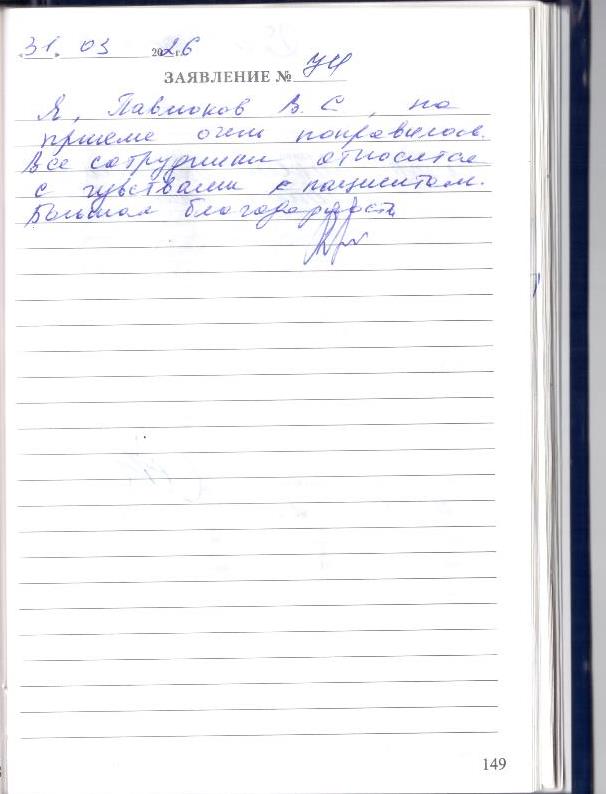 31. 03 2026
ЗАЯВЛЕНИЕ № 74
Я, Павлюков В. С, на
приеме очень понравилось.
Все сотрудники относятся
с чувствами к пациентам.
Большая благодарность
149